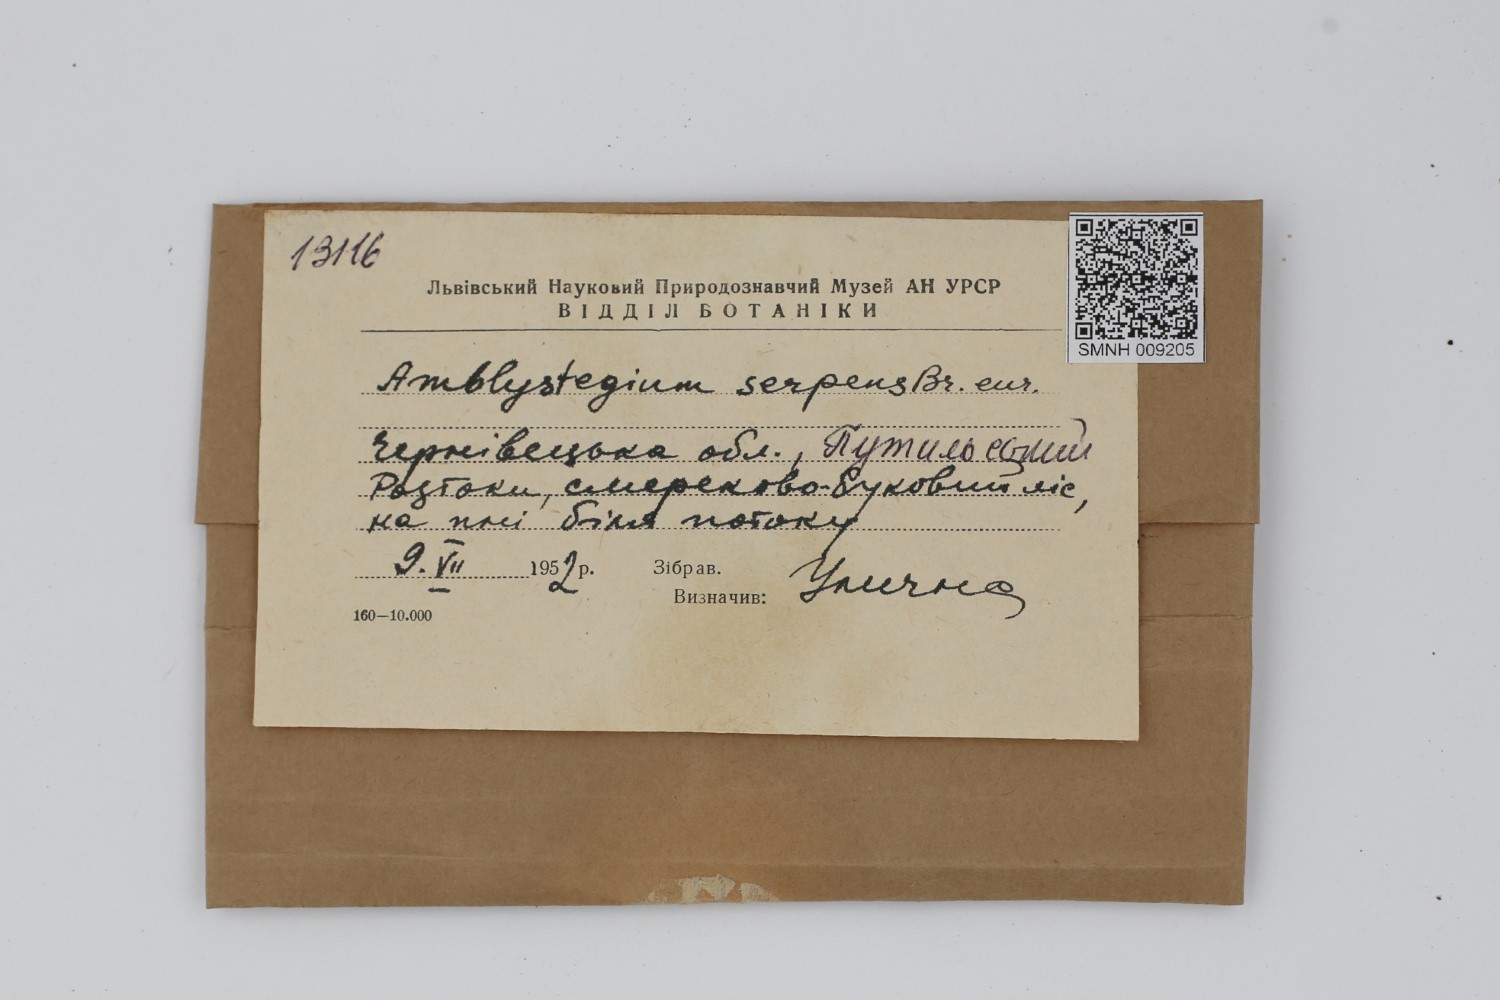 13116
Львівський Науковий Природознавчий Музей АН УРСР
ВІДДІЛ БОТАНІКИ
SMNH 009205
Amblystegium serpens Br. eur.
Чернівецька обл., Путильський
Розтоки, смереково-буковий ліс,
на пні біля потоку
9.VII 1952 р. Зібрав.
Визначив: Улична
160—10.000